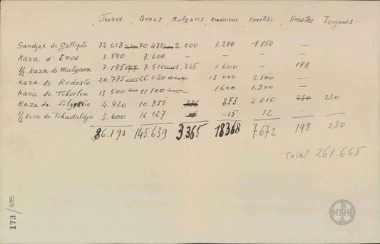 Turcs Grecs Bulgares Arméniens Israélit. Uniates Tziganes
Sandjak de Gallipoli 32.613 70.431 2.000 1.280 1.850 —
Kaza d'Enos 3.600 — — —
½ Kaza de Malgara 7.195 7.510 1.365 1.600 — 198
Kaza de Rodosto 20.775 26.020 13.000 2.300 —
Kaza de Tchorlou 11.100 1.600 1.500 —
Kaza de Silyvrie 4.920 10.851 873 2.010 250
½ Kaza de Tchadaldja 5.600 16.127 — 15 12 —
86.193 145.639 3.365 18368 7.672 198 230
Total 261.665
173 / SBS